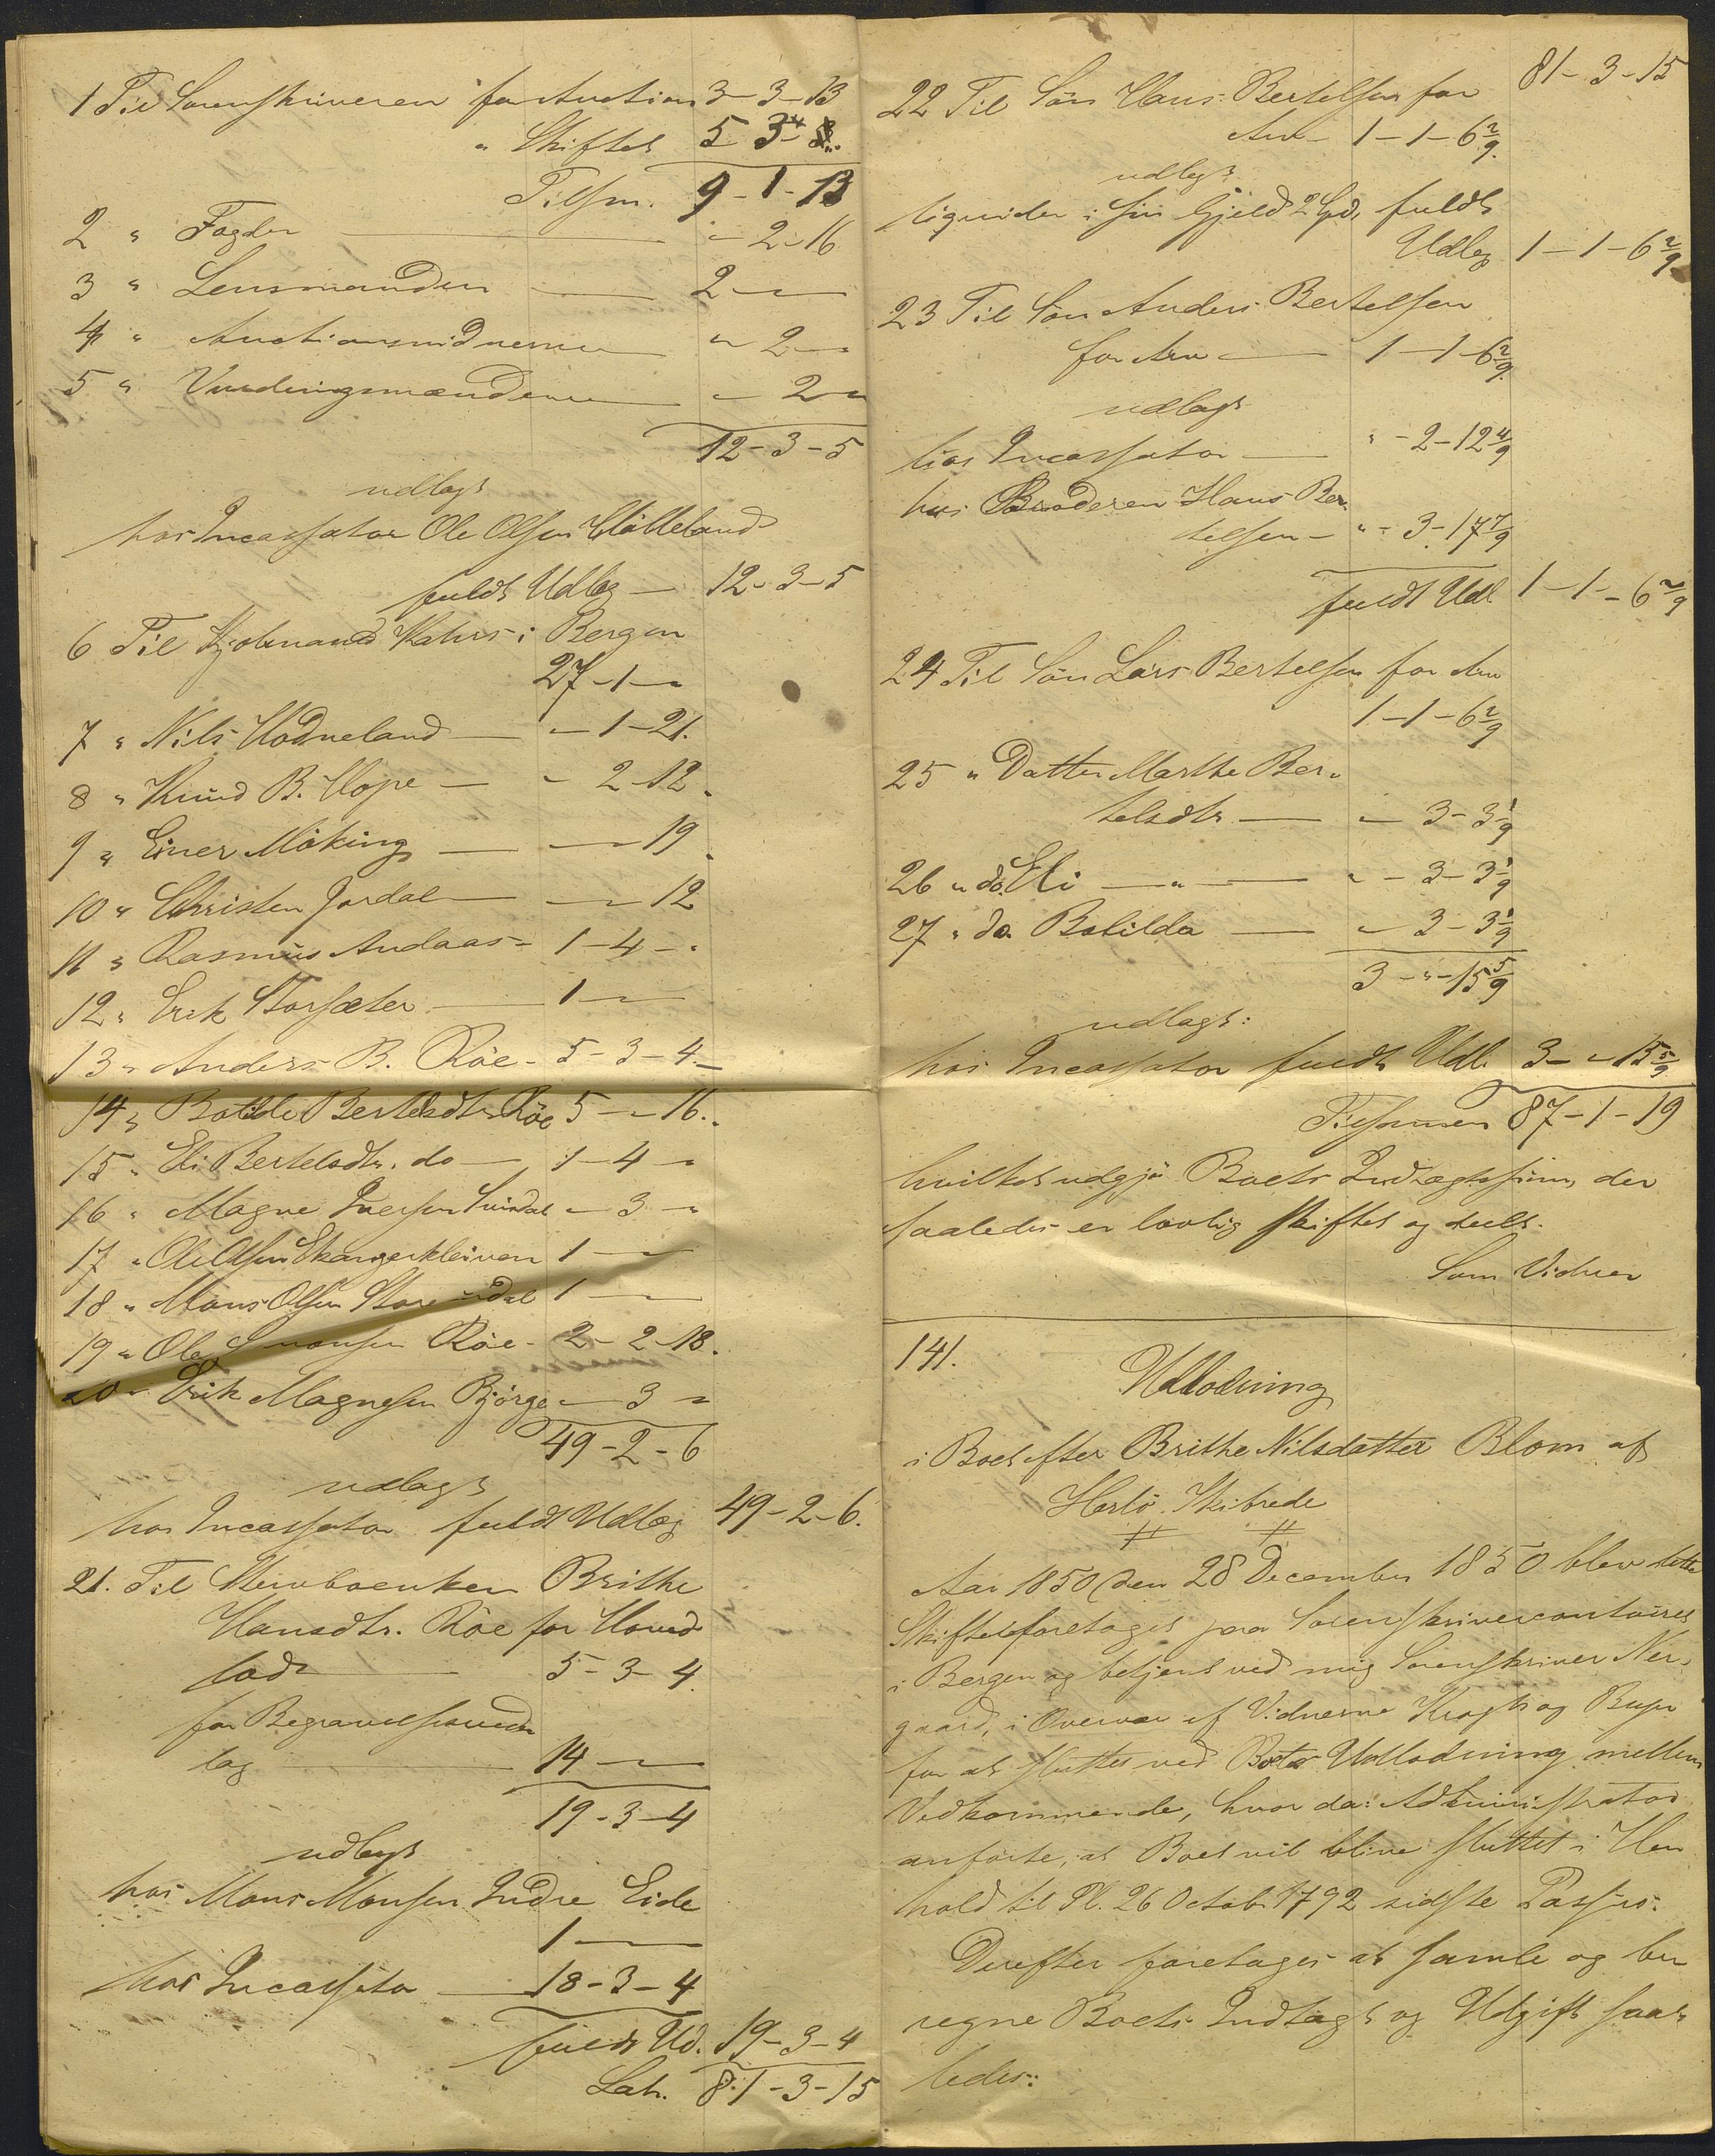 1 Til Sorenskriveren for Auction 3-3-13
" Skiftet 5 3 4
Tilsm. 9-1-13
2 " Fogden " 2-16
3 " Lensmanden 2 - "
4 " Auctionsvidnerne " 2 - "
5 " Vurderingsmændene " 2 "
12-3-5
udlagt
hos Incassator Ole Olsen
fuldt Udlæg - 12-3-5
6 Til Kjøbmand Kahrs i Bergen
27-1-"
7 " Nils Hodneland " - 1-21.
8 " Knud B. Hope " 2-12.
9 " Einer Möking " " 19.
10 " Christen Jordal " " 12
11 " Rasmus Andaas 1-4-"
12 " Erik Storsæter 1 - "
13 " Anders B. Röe - 5-3-4.
14 " Botilde Bertelsdtr Röe 5-"-16.
15 " Eli Bertelsdtr. do 1-4-"
16 " Magne Iversen " 3 "
17 " Ole Olsen 1 - "
18 " Mons Olsen 1 - "
19 " Ole Röe - 2-2-18.
20 " Erik Magnesen Bjørge " 3 "
49-2-6
udlagt
hos Incassator fuldt Udlæg 49-2-6.
21. Til Stervboenken Brithe
Hansdtr. Röe for Hoved-
lod 5-3-4.
for Begravelsesomkost
14 - "
19-3-4
udlagt
hos Mons Monsen Indre Eide
1 - "
hos Incassator 18-3-4
fuldt Ud. 19-3-4
Lat. 81-3-15
81-3-15
22 Til Søn Hans Bertelsen for
Arv - 1-1-6 2/9.
udlagt
liqvider i sin Gjeld 2 Spd. fuldt
Udlæg 1-1-6 2/9
23 Til Søn Anders Bertelsen
for Arv 1-1-6 2/9.
udlagt
hos Incassator " - 2-12 4/9
hos Broderen Hans Ber-
telsen - " - 3-17 7/9
fuldt Udl 1-1-6 2/9
24 Til Søn Lars Bertelsen for Arv
1-1-6 2/9
25 " Datter Marthe Ber-
telsdtr " 3-3 1/9
26 " do. Eli " " - 3-3 1/9
27 " do. Botilda " 3-3 1/9
3-"-15 5/9
udlagt:
hos Incassator fuldt Udl. 3-"-15 5/9
Tilsammen 87-1-19
hvilket udgjør Boets Indtægtssum, der
saaledes er lovlig skiftet og deelt.
Som Vidner
141.
Udlodning
i Boet efter Brithe Nilsdatter Blom af
Herlö Skibrede
Aar 1850 den 28 December 1850 blev dette
Skifte foretaget paa Sorenskrivercontoiret
i Bergen og betjent ved mig Sorenskriver Ner-
gaard, i Overvær af Vidnerne Krogh og
for at sluttes ved Boets Udlodning mellem
Vedkommende, hvor da: Administrator
anførte, at Boet vil blive sluttet i Hen
hold til Pl. 26 Octob. 1792 sidste Passus.
Derefter foretages at samle og be
regne Boets Indtægt og Udgift saa-
ledes: